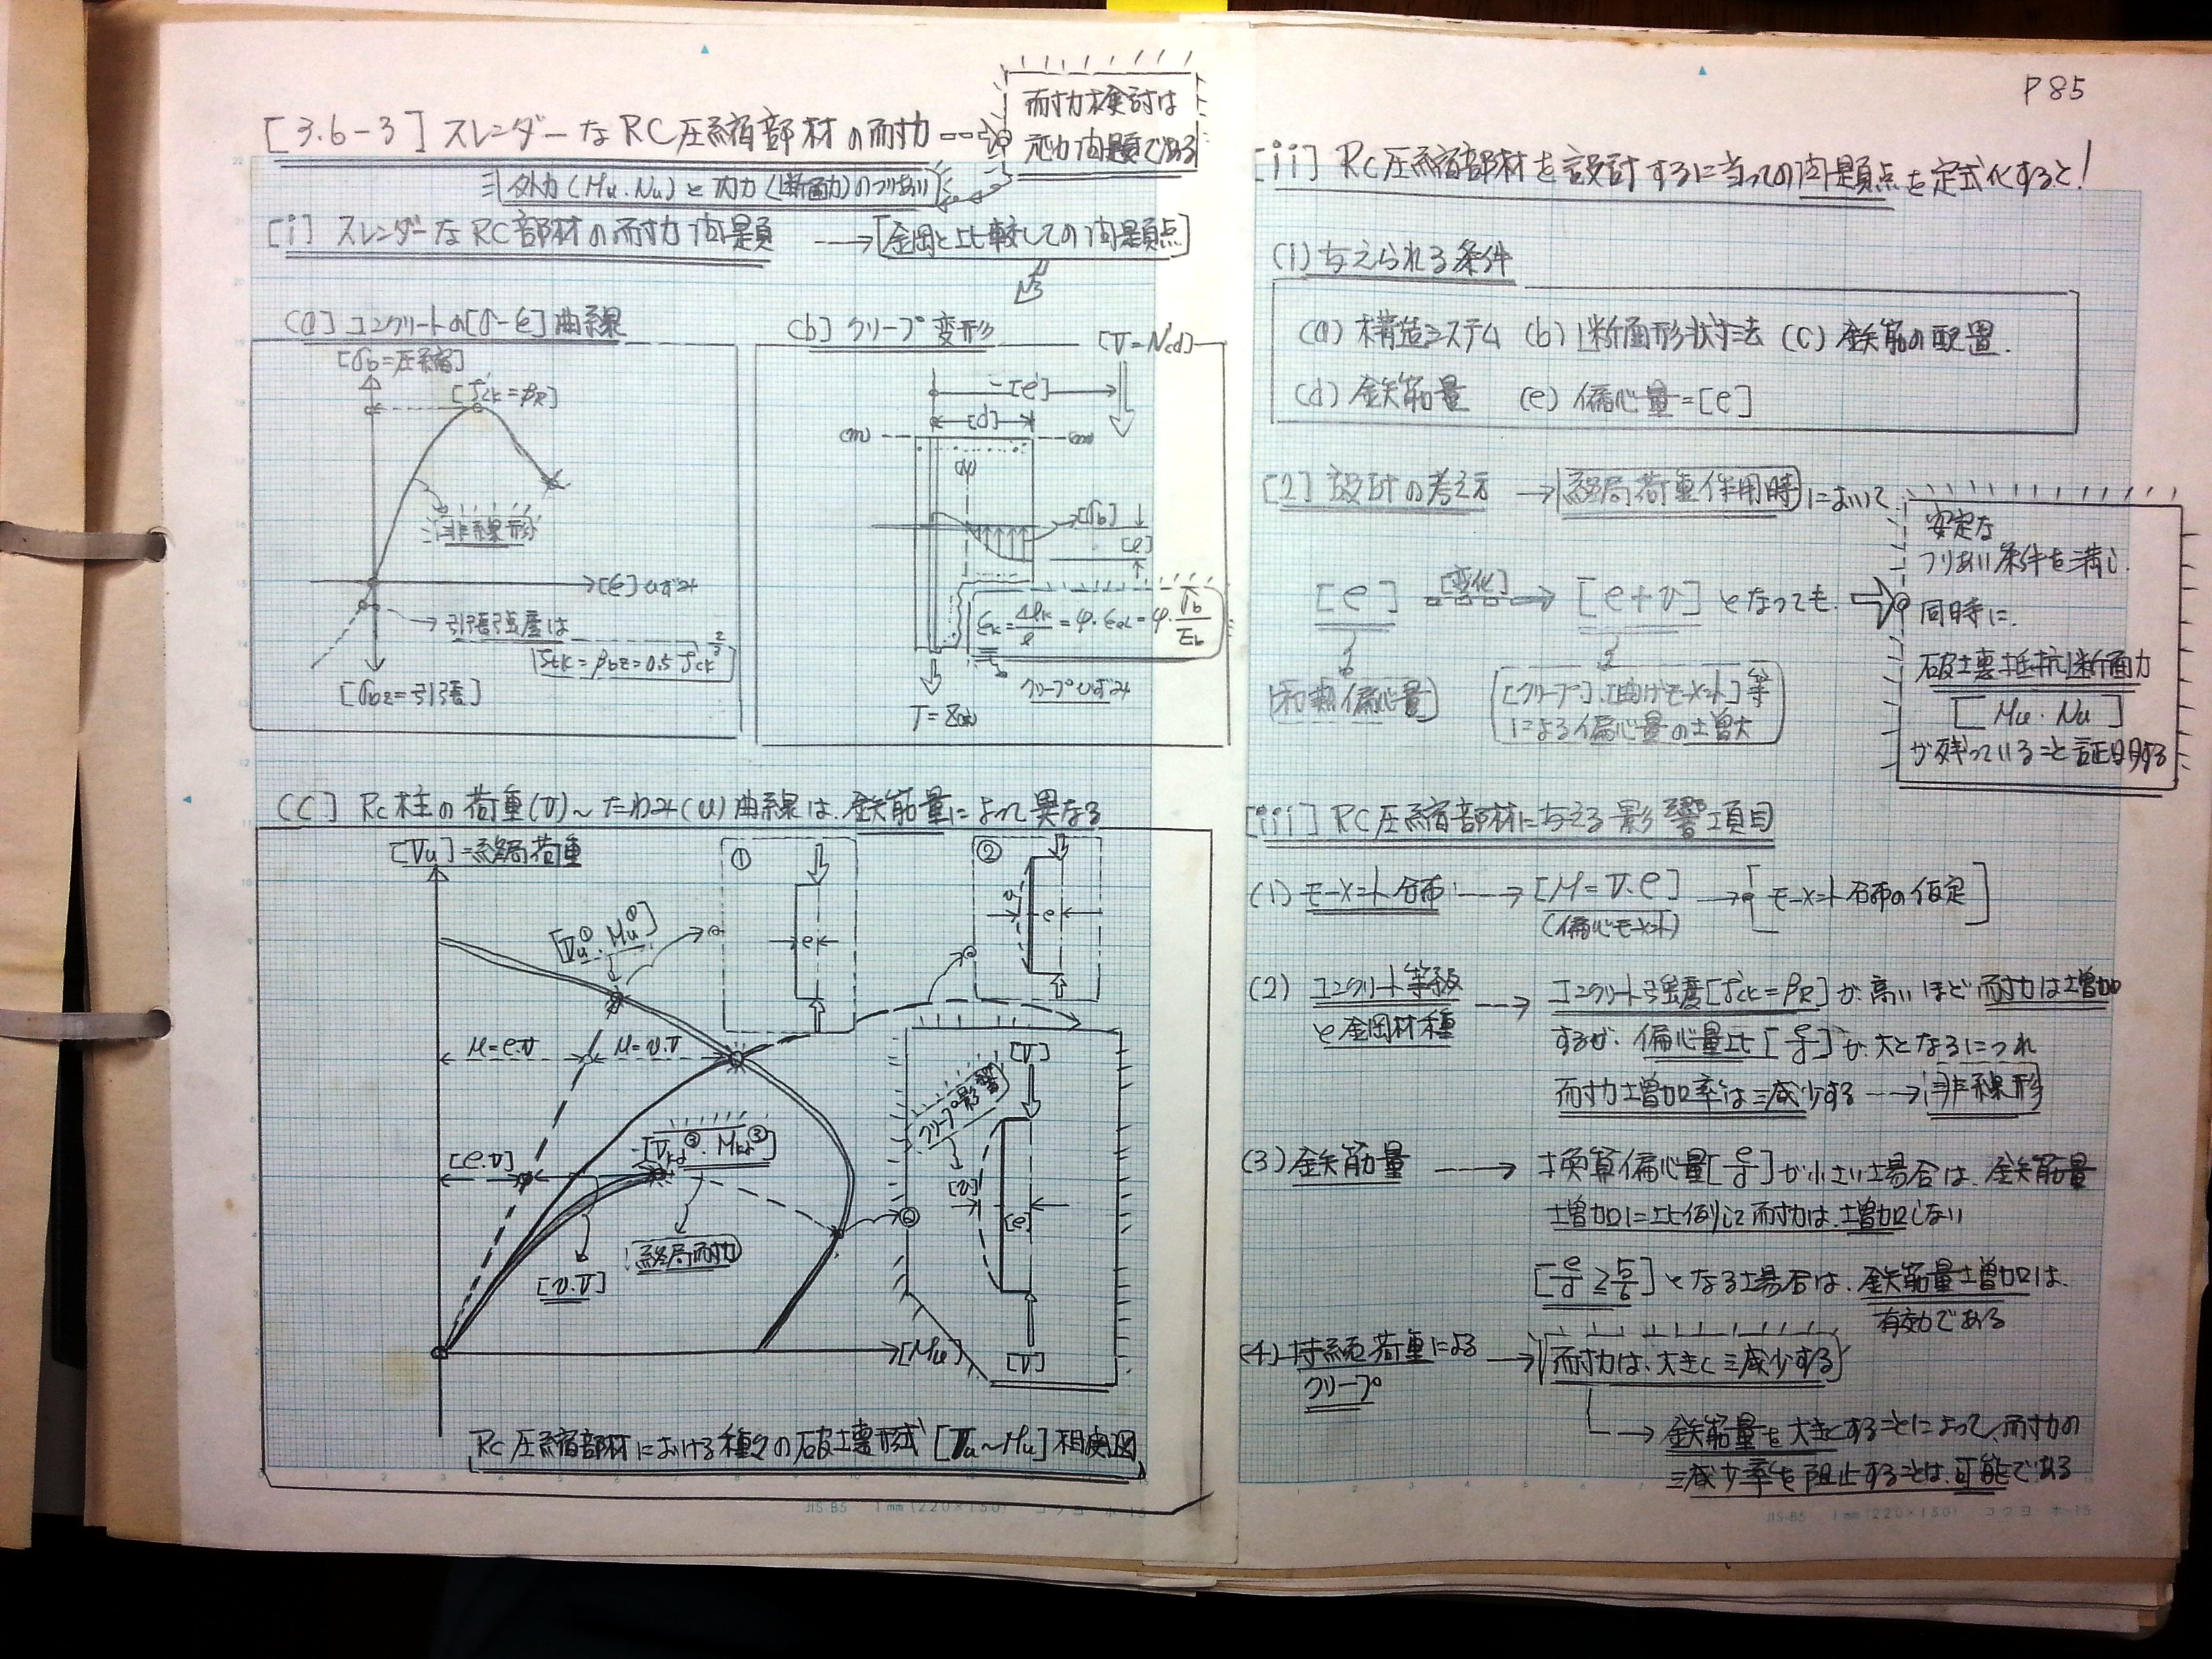 [3.6-3] スレンダーなRC圧縮部材の耐力
耐力検討は
応力問題である
外力(Mu・Nu)と内力(断面力)のつりあい
[i] スレンダーなRC部材の耐力問題 → [鋼と比較しての問題点]
(a) コンクリートの[σ-ε]曲線
[σb=圧縮]
[fck=βR]
非線形
[ε]ひずみ
引張強度は
ftk=βbz=0.5 fck^2/3
[σbz=引張]
(b) クリープ変形
[V=N(d)]
[e]
[d]
(m) (m)
[σb]
[ℓ]
εk=Δℓk/ℓ=φ・εel=φ・σb/Eb
クリープひずみ
(C) RC柱の荷重(V)~たわみ(v)曲線は、鉄筋量によって異なる
[Vu]=終局荷重
①
②
[Vu①・Mu①]
e
v e
M=e.V M=v.V
[V]
クリープ影響
[Vkd③・Mkd③]
[e.V]
[v]
[e]
終局耐力
[v.V]
[Mu]
[V]
RC圧縮部材における種々の破壊形式[Vu~Mu]相関図
JIS B5 1mm(220×150) コクヨ ホ-15
P85
[ii] RC圧縮部材を設計するに当っての問題点を定式化すると!
(1) 与えられる条件
(a) 構造システム (b) 断面形状寸法 (c) 鉄筋の配置.
(d) 鉄筋量 (e) 偏心量=[e]
[2] 設計の考え方 → 終局荷重作用時において
安定な
つりあい条件を満し.
[e] 変化 → [e+v] となっても.
同時に.
破壊抵抗断面力
[Mu・Nu]
が残っていること証明する
初期偏心量
[クリープ].[曲げモーメント]等
による偏心量の増大
[iii] RC圧縮部材に与える影響項目
(1) モーメント分布 → [M=V.e] → [モーメント分布の仮定]
(偏心モーメント)
(2) コンクリート等級 → コンクリート強度[fck=βR]が、高いほど耐力は増加
と鋼材種
するが、偏心量比[e/d]が、大となるにつれ
耐力増加率は減少する → 非線形
(3) 鉄筋量 → 換算偏心量[e/d]が小さい場合は、鉄筋量
増加に比例して耐力は、増加しない
[e/d ≧ 5/6]となる場合は、鉄筋量増加は、
有効である
(4) 持続荷重による → 耐力は、大きく減少する
クリープ
→ 鉄筋量を大きくすることによって、耐力の
減少率を阻止することは、可能である
JIS B5 1mm(220×150) コクヨ ホ-15